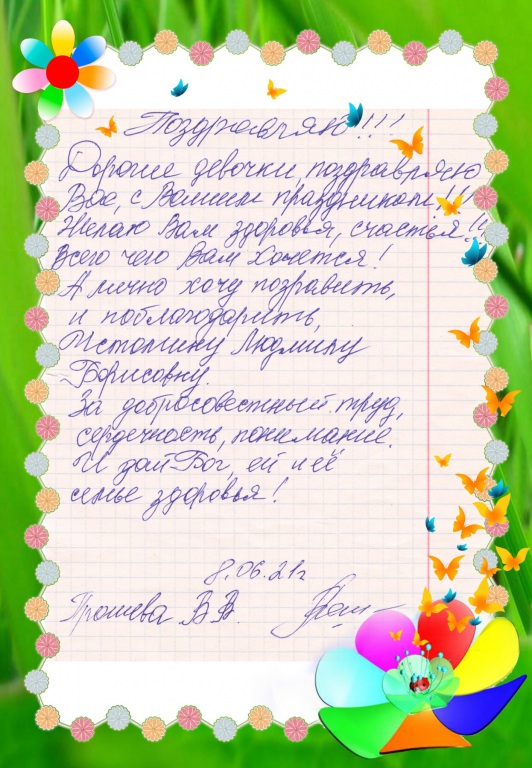 Поздравляю!!!
Дорогие девочки, поздравляю
Вас, с Вашим праздником!!!
Желаю Вам здоровья, счастья!!
Всего чего Вам хочется!
А лично хочу позравить,
и поблагодарить,
Истомину Людмилу
Борисовну.
За добросовестный труд,
сердечность, понимание.
И дай Бог, ей и её
семье здоровья!
8.06.21г
Грошева В.В.